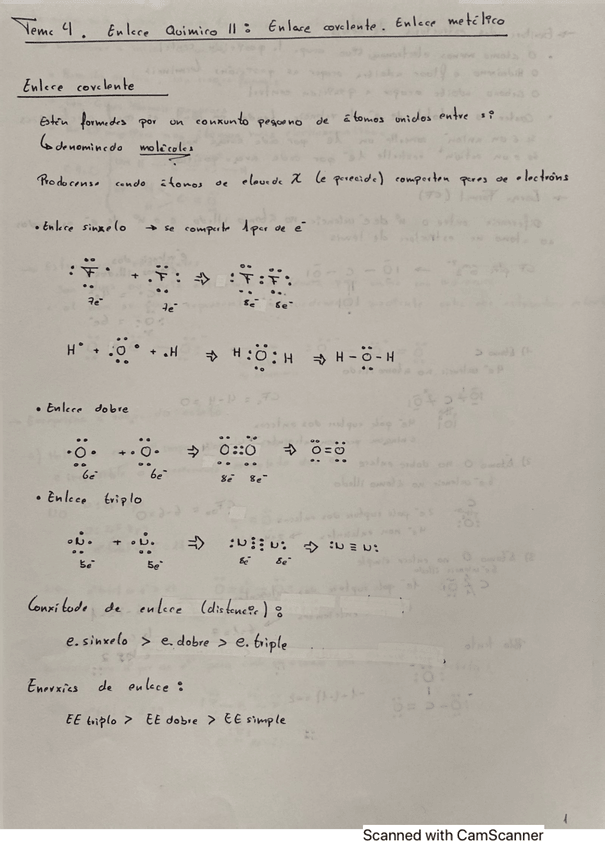 Tema 4. Enlace Químico II: Enlace covalente. Enlace metálico
Enlace covalente
Están formados por un conxunto pequeno de átomos unidos entre si
↳ denominado moléculas
Prodúcense cando átomos de elevada X (e parecida) comparten pares de electróns
• Enlace sinxelo → se comparte 1 par de e⁻
:F̈· + ·F̈: ⇒ :F̈:F̈:
7e⁻ 7e⁻ 8e⁻ 8e⁻
H· + ·Ö· + ·H ⇒ H:Ö:H ⇒ H-Ö-H
• Enlace dobre
·Ö· + ·Ö· ⇒ Ö::Ö ⇒ Ö=Ö
6e⁻ 6e⁻ 8e⁻ 8e⁻
• Enlace triplo
·N· + ·N· ⇒ :N⋮⋮N: ⇒ :N≡N:
5e⁻ 5e⁻ 8e⁻ 8e⁻
Lonxitude de enlace (distancia):
e. sinxelo > e. dobre > e. triple
Enerxías de enlace:
EE triplo > EE dobre > EE simple
1
Scanned with CamScanner